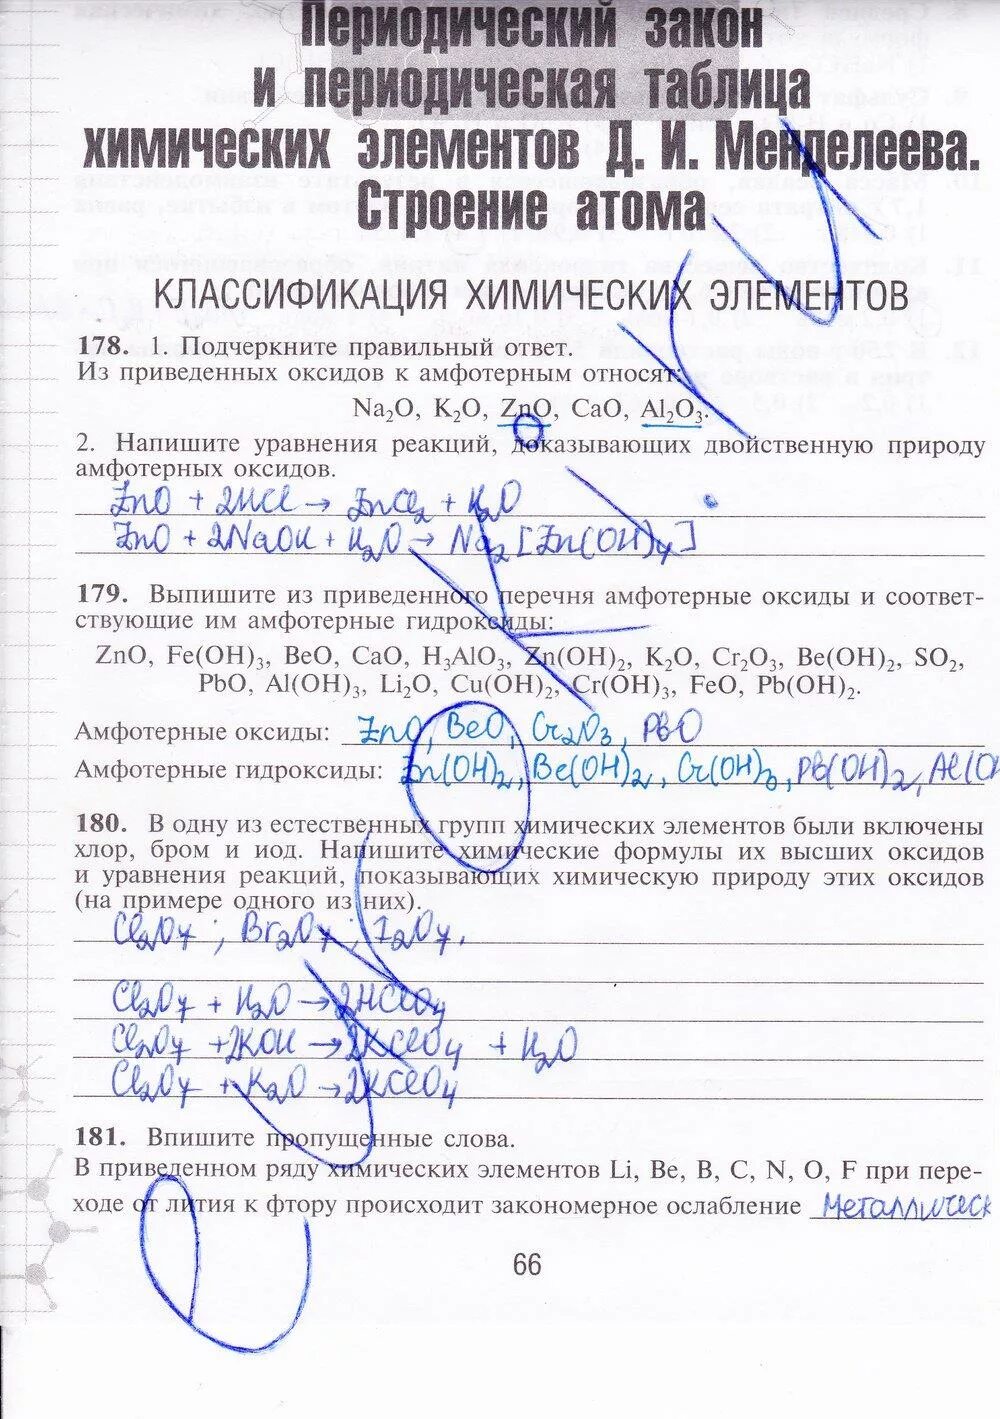 Периодический закон
и периодическая таблица
химических элементов Д. И. Менделеева.
Строение атома
КЛАССИФИКАЦИЯ ХИМИЧЕСКИХ ЭЛЕМЕНТОВ
178. 1. Подчеркните правильный ответ.
Из приведенных оксидов к амфотерным относят:
Na₂O, K₂O, ZnO, CaO, Al₂O₃.
2. Напишите уравнения реакций, доказывающих двойственную природу
амфотерных оксидов.
ZnO + 2HCl → ZnCl₂ + H₂O
ZnO + 2NaOH + H₂O → Na₂[Zn(OH)₄]
179. Выпишите из приведенного перечня амфотерные оксиды и соответ-
ствующие им амфотерные гидроксиды:
ZnO, Fe(OH)₃, BeO, CaO, H₃AlO₃, Zn(OH)₂, K₂O, Cr₂O₃, Be(OH)₂, SO₂,
PbO, Al(OH)₃, Li₂O, Cu(OH)₂, Cr(OH)₃, FeO, Pb(OH)₂.
Амфотерные оксиды: ZnO, BeO, Cr₂O₃, PbO
Амфотерные гидроксиды: Zn(OH)₂, Be(OH)₂, Cr(OH)₃, Pb(OH)₂, Al(OH
180. В одну из естественных групп химических элементов были включены
хлор, бром и иод. Напишите химические формулы их высших оксидов
и уравнения реакций, показывающих химическую природу этих оксидов
(на примере одного из них).
Cl₂O₇; Br₂O₇; I₂O₇.
Cl₂O₇ + H₂O → 2HClO₄
Cl₂O₇ + 2KOH → 2KClO₄ + H₂O
Cl₂O₇ + K₂O → 2KClO₄
181. Впишите пропущенные слова.
В приведенном ряду химических элементов Li, Be, B, C, N, O, F при пере-
ходе от лития к фтору происходит закономерное ослабление металлическ
66